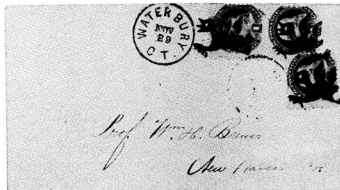 WATERBURY
NOV
29
CT.
Prof Wm. H. Brewer
New Haven